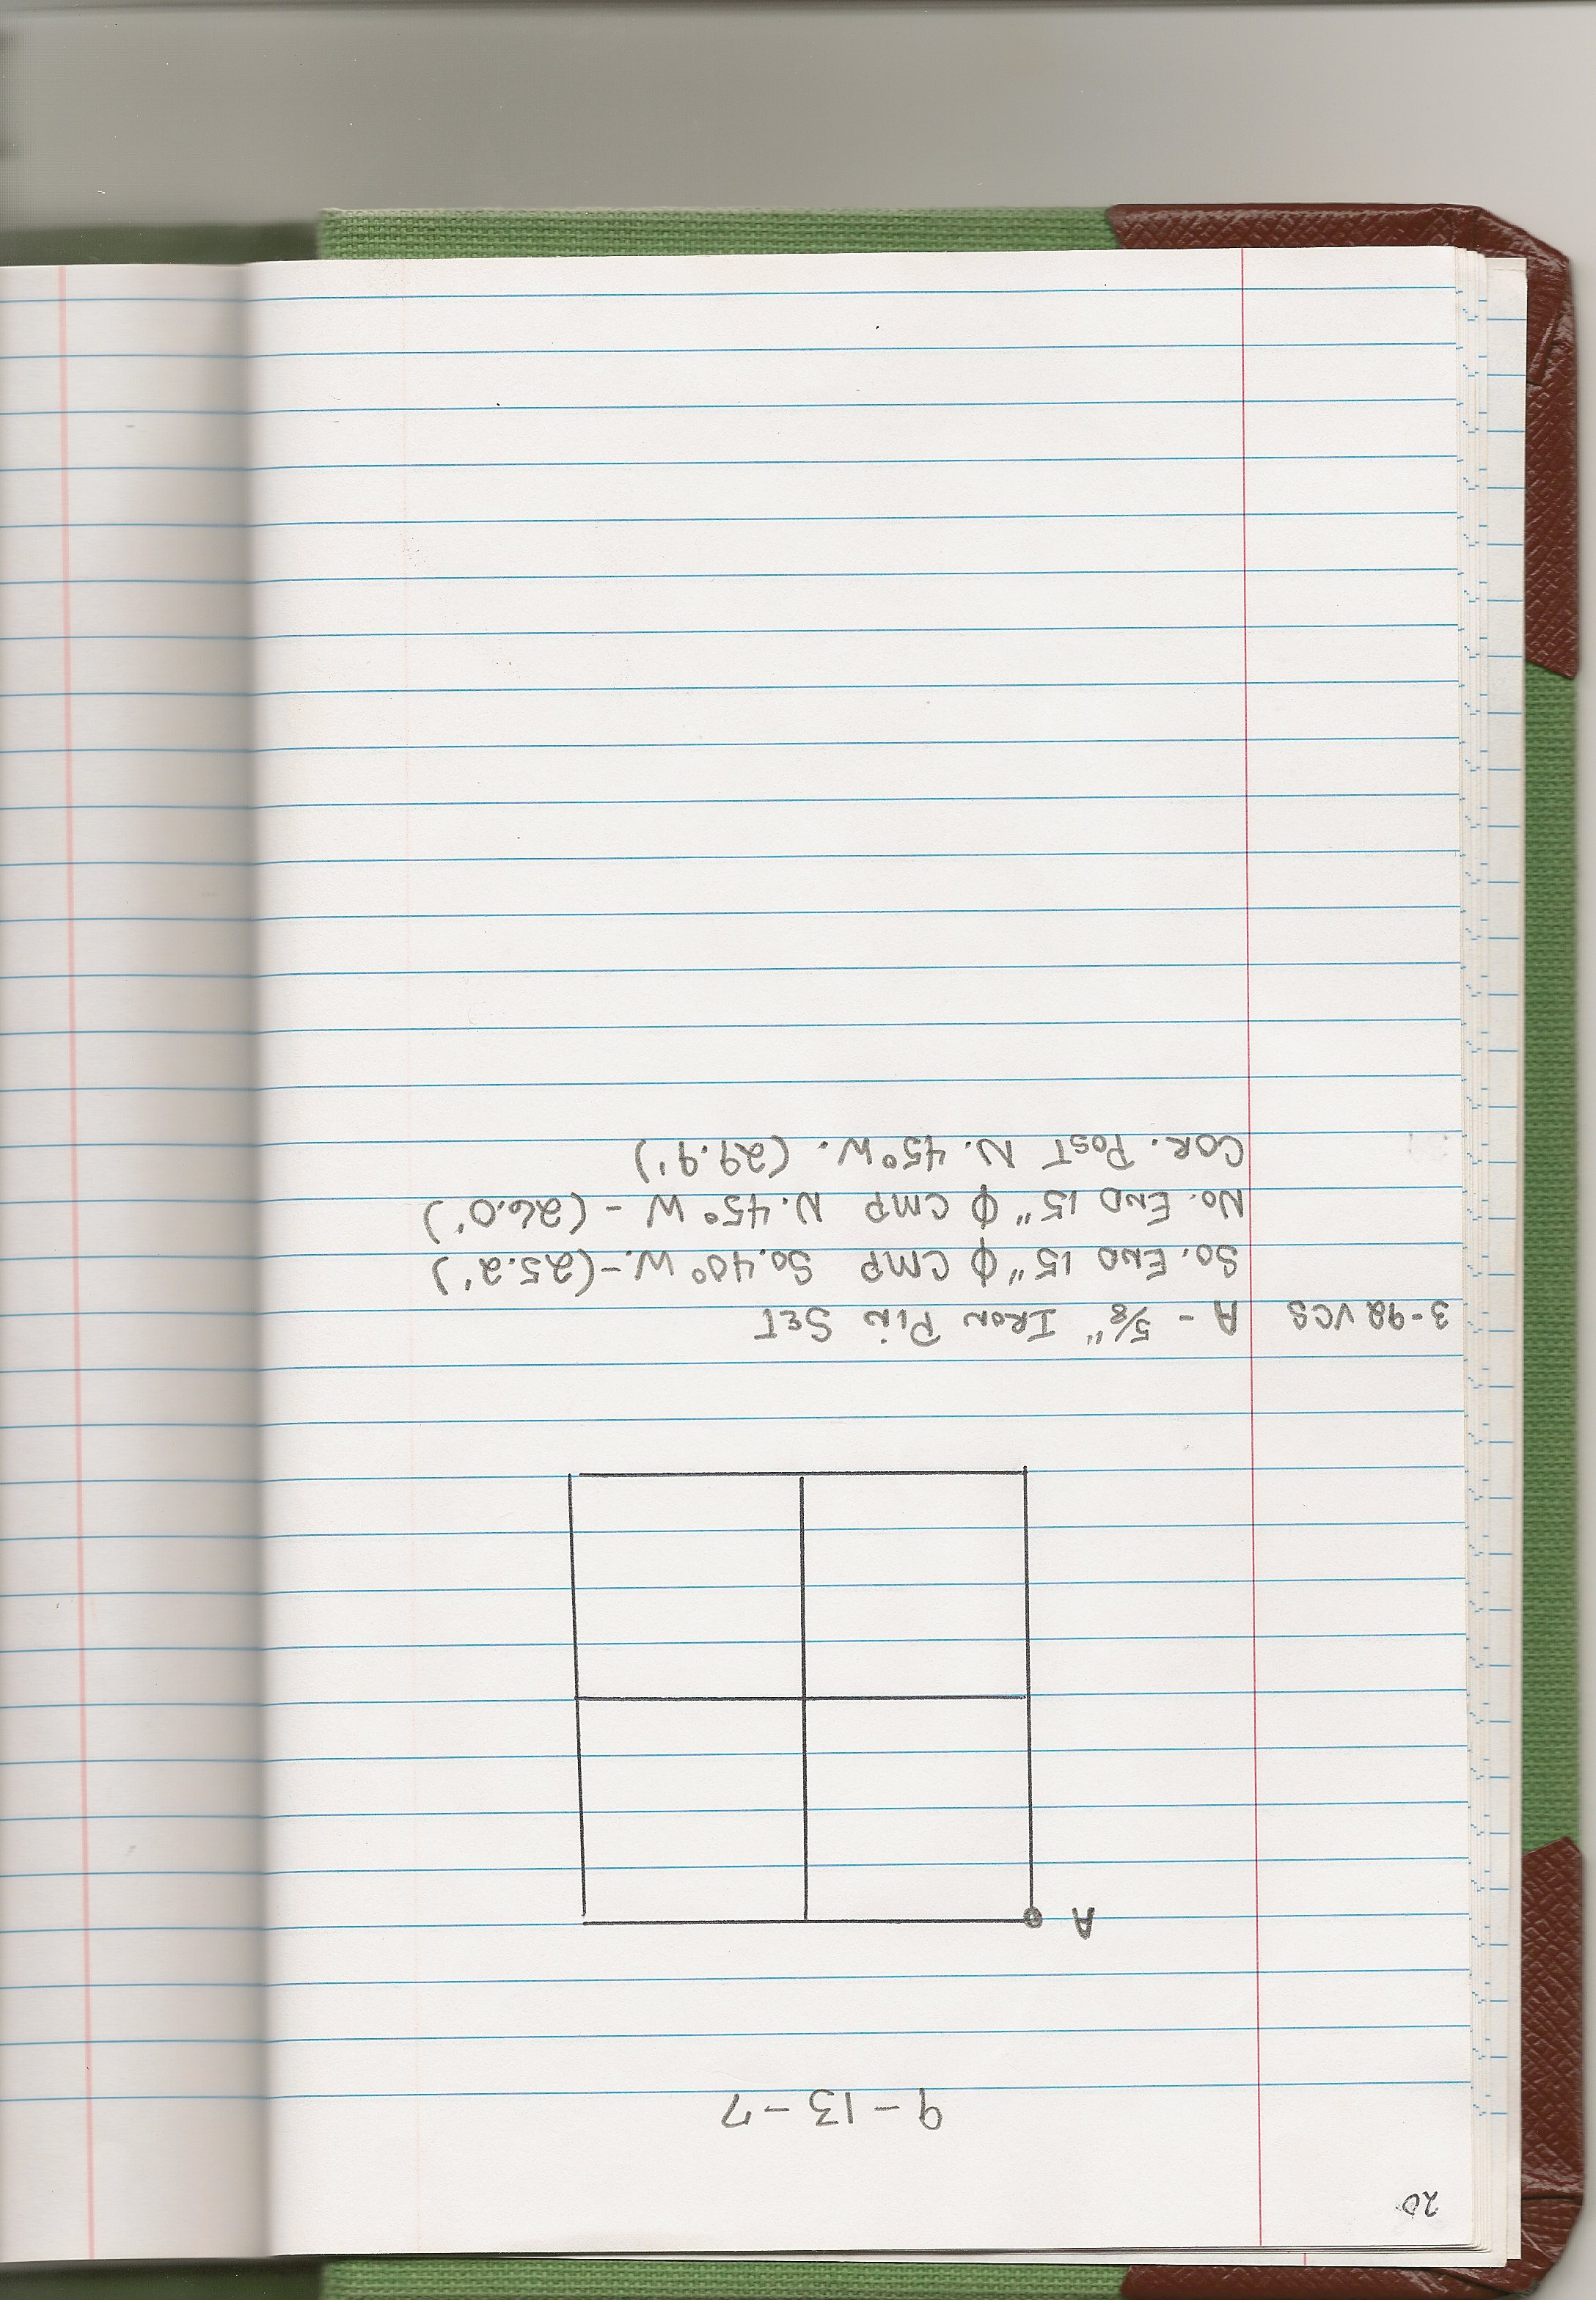 20
9-13-7
A
3-92 VCS A - 5/8" IRON PIN SET
SO. END 15" φ CMP SO. 40° W. - (25.2')
NO. END 15" φ CMP N. 45° W - (26.0')
COR. POST N. 45° W. (29.9')